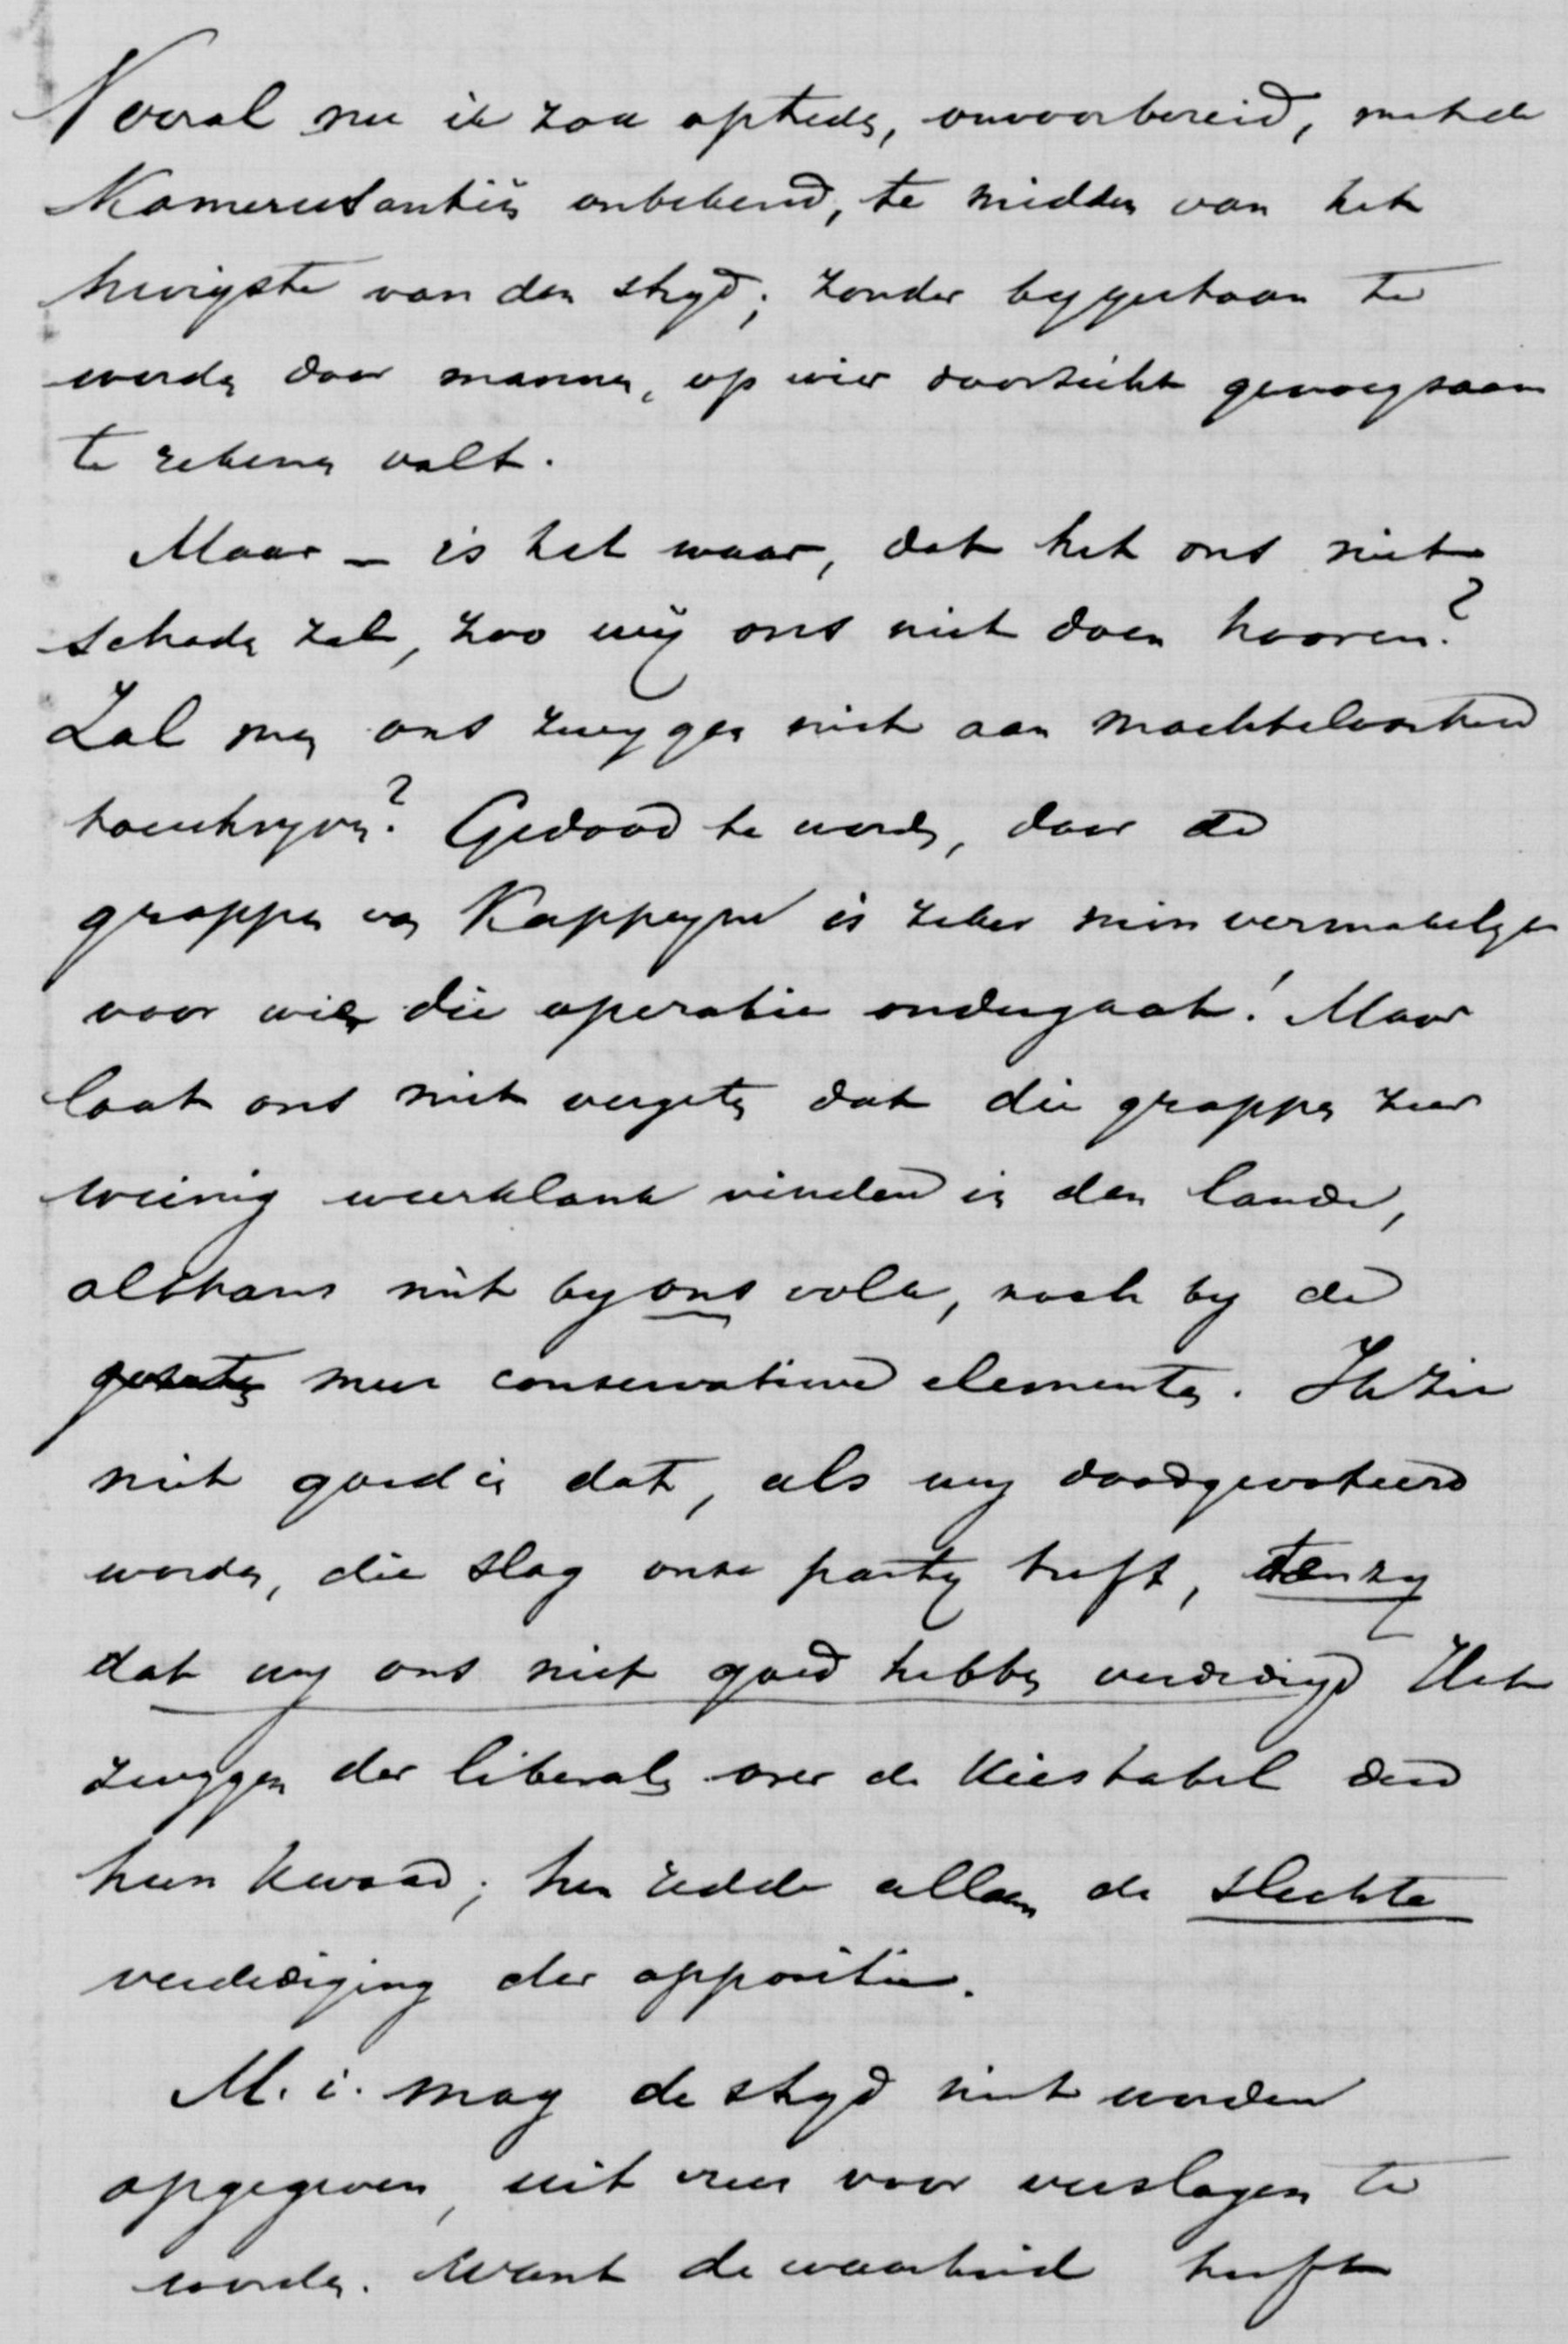 Vooral nu ik zou optreden, onvoorbereid, met de
Kamerusantiën onbekend, te midden van het
hevigste van den strijd; zonder bygestaan te
worden door mannen, op wier doorzicht genoegzaam
te rekenen valt.
Maar – is het waar, dat het ons niet
schaden zal, zoo wij ons niet doen hooren?
Zal men ons zwygen niet aan machteloosheid
toeschryven? Gedood te worden, door de
grappen van Kappeyne is zeker min vermakelyk
voor wien die operatie ondergaat! Maar
laat ons niet vergeten dat die grappen zeer
weinig weerklank vinden in den lande,
althans niet by ons volk, noch by de
meer conservatieve elementen. Ik zie
niet goed in dat, als wy doodgevoteerd
worden, die slag onze party treft, tenzy
dat wy ons niet goed hebben verdedigd Het
zwygen der liberalen over de Kiestabel deed
hun kwaad; hen redde alleen de slechte
verdediging der oppositie.
M. i. mag de stryd niet worden
opgegeven, uit vrees voor verslagen te
worden. Want de waarheid heeft